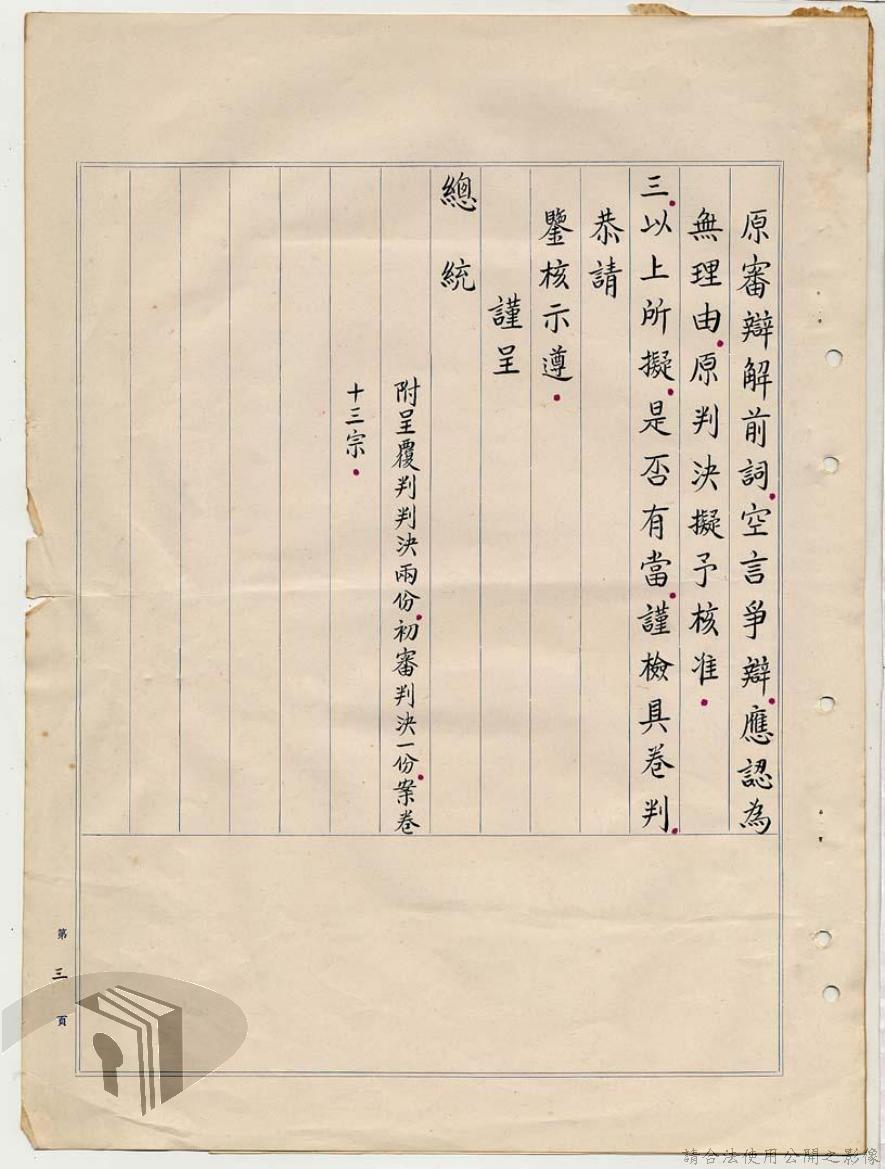 原審辯解前詞.空言爭辯.應認為
無理由.原判決擬予核准.
三.以上所擬.是否有當.謹檢具卷判.
恭請
鑒核示遵.
謹呈
總統
附呈覆判判決兩份.初審判決一份.案卷
十三宗.
第三頁
請合法使用公開之影像